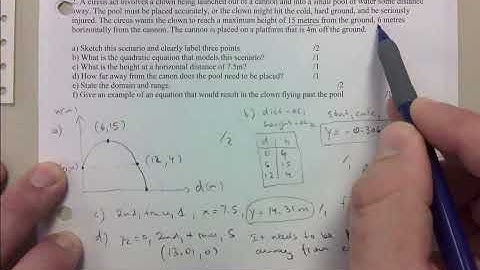 2. A circus act involves a clown being launched out of a cannon and into a small pool of water some distance
away. The pool must be placed accurately, or the clown might hit the cold, hard ground, and be seriously
injured. The circus wants the clown to reach a maximum height of 15 metres from the ground, 6 metres
horizontally from the cannon. The cannon is placed on a platform that is 4m off the ground.
a) Sketch this scenario and clearly label three points. /2
b) What is the quadratic equation that models this scenario? /1
c) What is the height at a horizontal distance of 7.5m? /1
d) How far away from the canon does the pool need to be placed? /1
e) State the domain and range.
f) Give an example of an equation that would result in the clown flying past the pool
a)
(6,15)
(12,4)
d(m)
/2
b) dist=
height=
stat, calc,
d h
0 4
6 15
12 4
y = -0.306
c) 2nd, trace, 1, x=7.5, y=14.31m /1
d) y2=0, 2nd, trace, 5 It needs to be
(13.01,0) away from